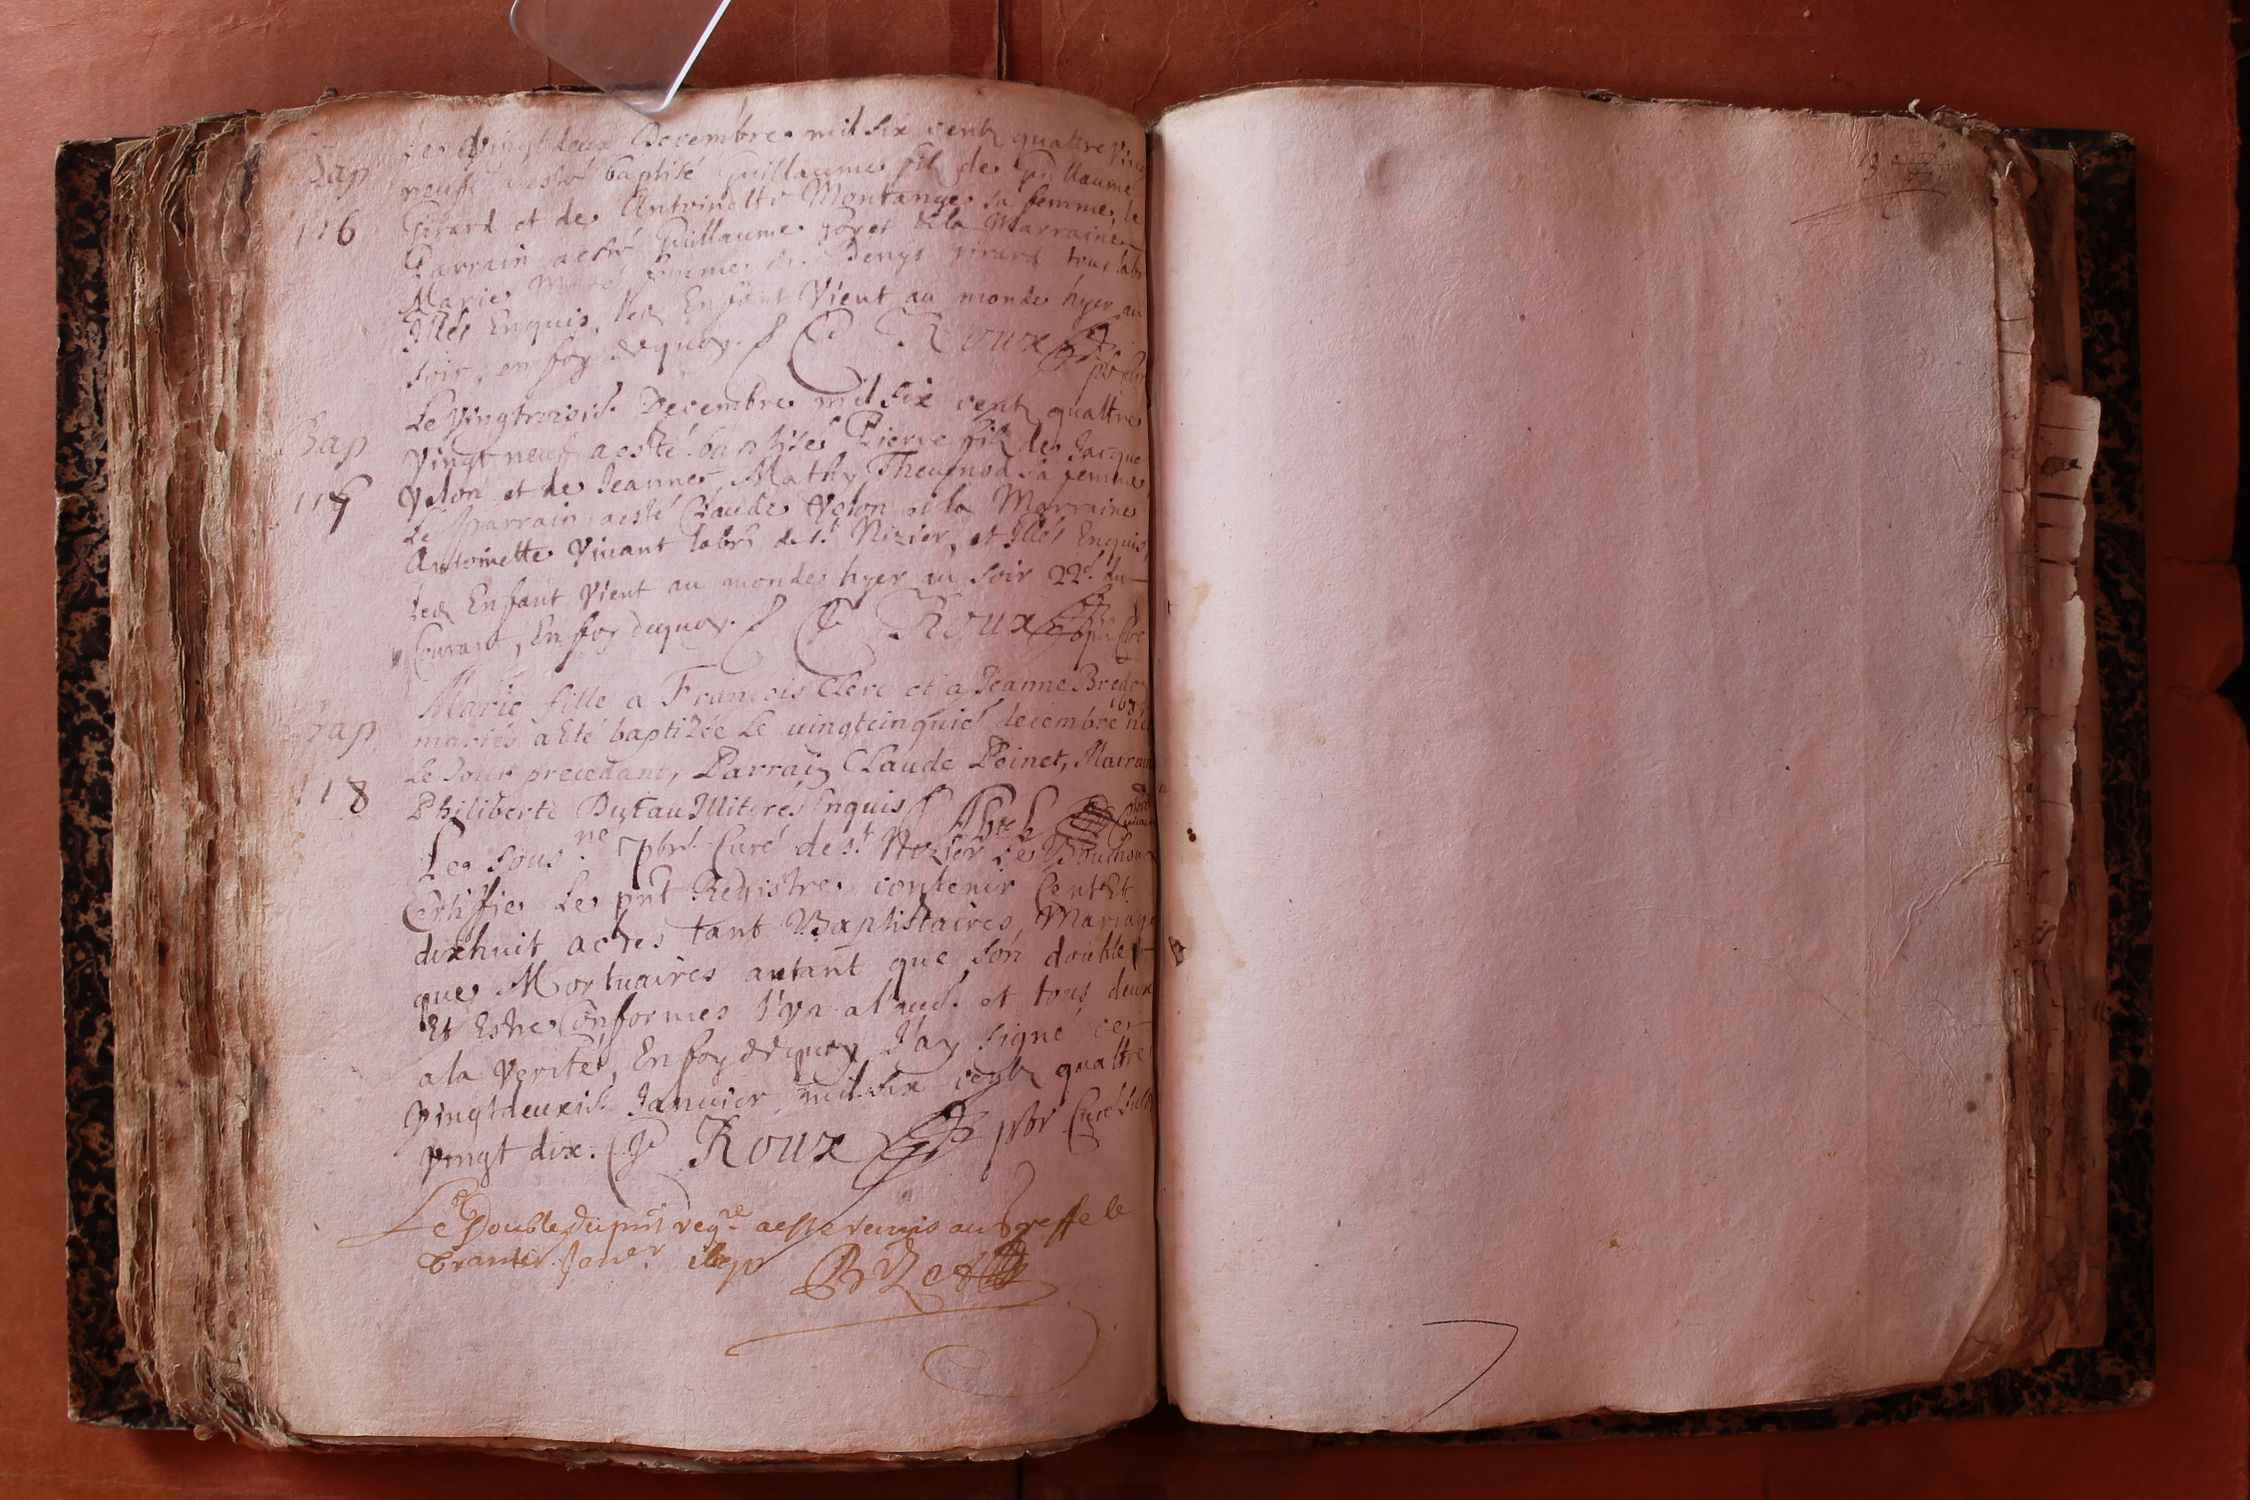 Bap
116
Le vingtdeux Decembre mil six cent quattre vingt
neuf aesté baptisé Guillaume fils de Guillaume
Girard et de Antoinette Montange sa femme, le
Parrain aesté Guillaume et la Marraine
Marie femme de Denys Girard tous
Illés Enquis, led Enfant Vient au monde hyer au
soir, en foy dequoy. Roux
Bap
117
Le Vingtroisie. Decembre mil six cent quattre
Vingt neuf aesté baptisé Pierre fils de Jacque
Velon et de Jeanne Mathy Theuenod sa femme
Le parrain aesté Claude Velon et la Marraine
Antoinette Vivant labrs de st Nizier, et Illés Enquis,
led Enfant Vient au monde hyer au soir 22e du
Courant, En foy dequoy. Roux
Bap
118
Marie fille a Francois Clerc et a Jeanne
mariés a Eté baptizée Le uingtcinquie decembre
Le Jour precedant, Parrain Claude Poinet, Marraine
Philiberte Dufau Illiterés Enquis
Le sousne pbr. Curé de st Nizier Le Bouchoux
Certiffie Le pnt Registre contenir Cent Et
dixhuit actes tant Baptistaires, Mariage
que Mortuaires autant que son double
Et Estre Conformes l'un al aud. et tous deux
a la Verité, En foy dequoy J'ay signé ce
Vingtdeuxie. Januier mil six cent quattre
Vingt dix. Roux pbr Curé
Le Double du pnt regre aeste remis au Greffe le
Janer